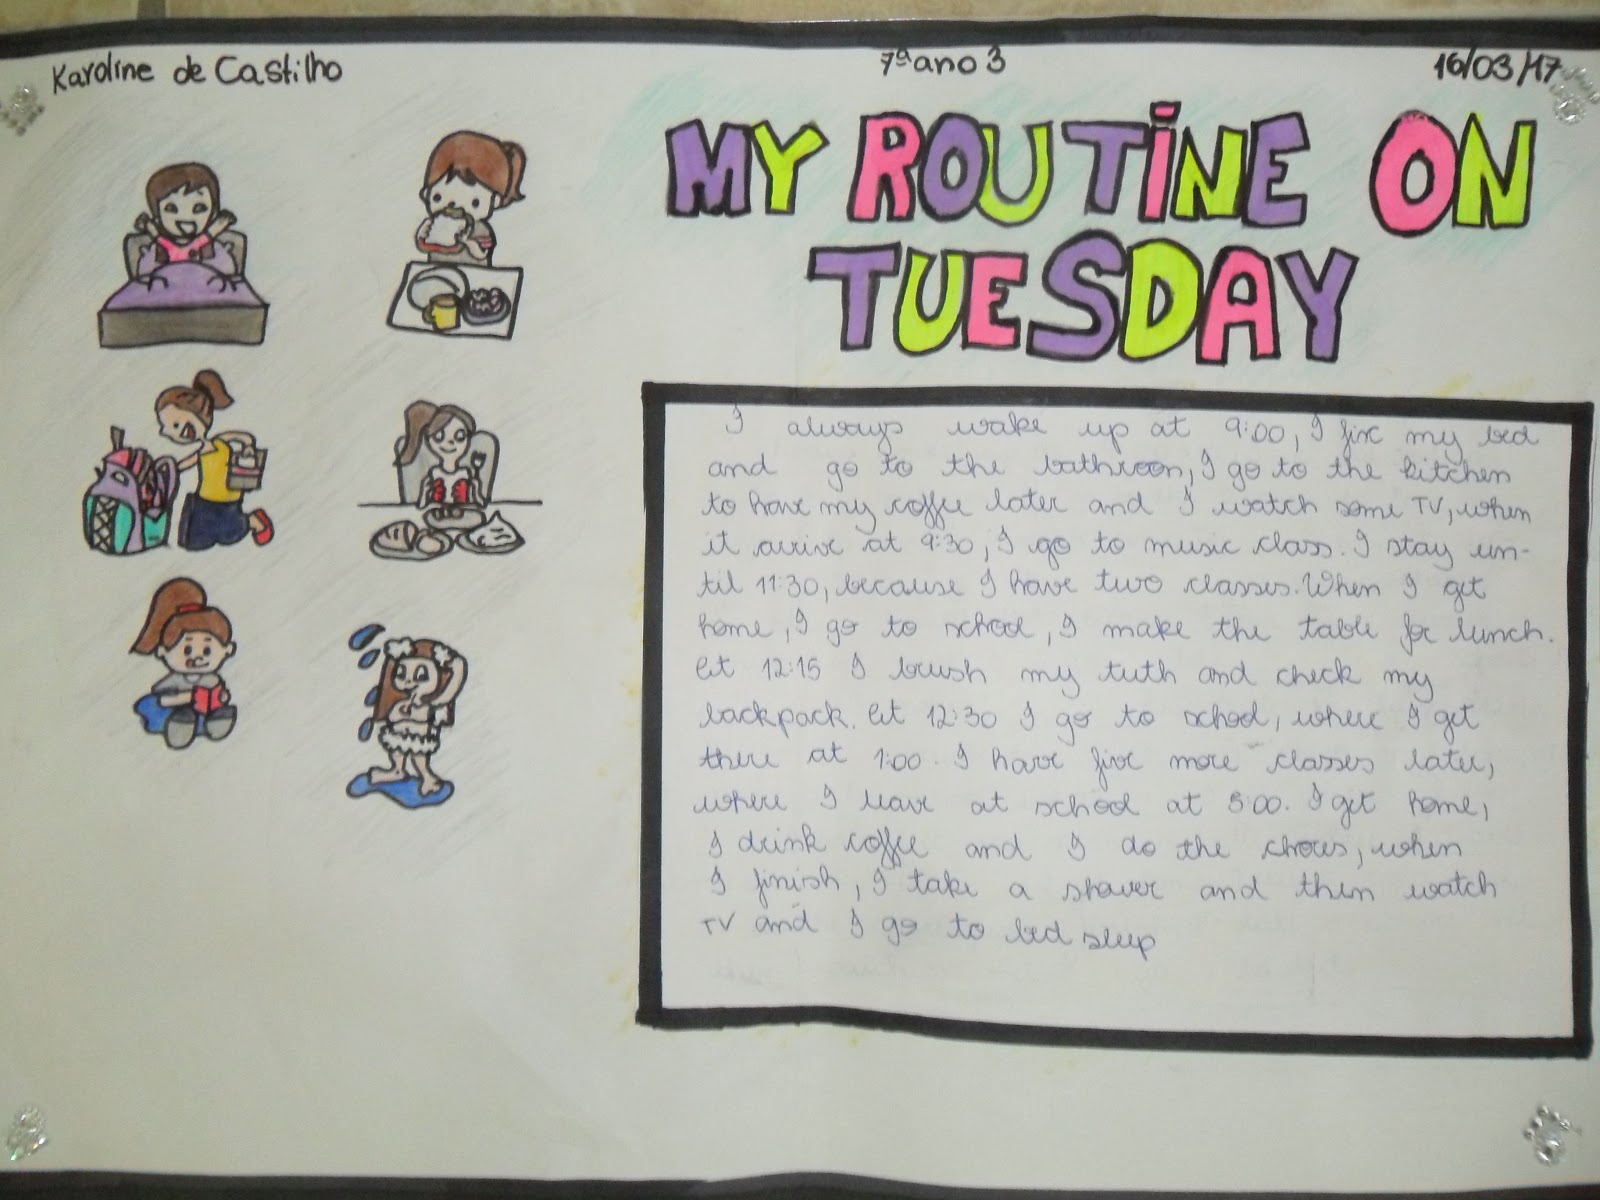 Karoline de Castilho
7º ano 3
16/03/17
MY ROUTINE ON
TUESDAY
I always wake up at 9:00, I fix my bed
and go to the bathroon, I go to the kitchen
to have my coffee later and I watch some TV, when
it arrive at 9:30, I go to music class. I stay un-
til 11:30, because I have two classes. When I get
home, I go to school, I make the table for lunch.
At 12:15 I brush my tuth and check my
backpack. At 12:30 I go to school, where I get
there at 1:00. I have five more classes later,
where I leave at school at 5:00. I get home,
I drink coffee and I do the chores, when
I finish, I take a shower and then watch
TV and I go to bed sleep